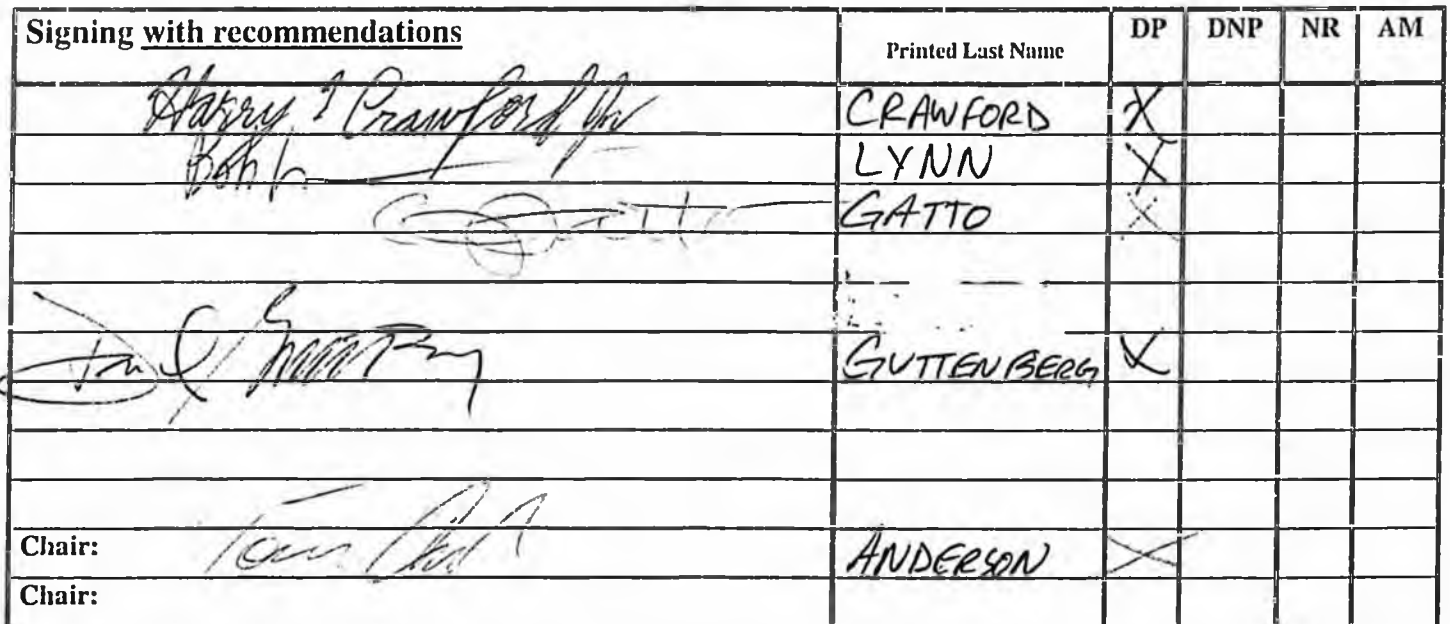 Signing with recommendations Printed Last Name DP DNP NR AM
Harry T Crawford Jr CRAWFORD X
Bob L LYNN X
Gatto GATTO X
GUTTENBERG X
Chair: Tom ANDERSON X
Chair: